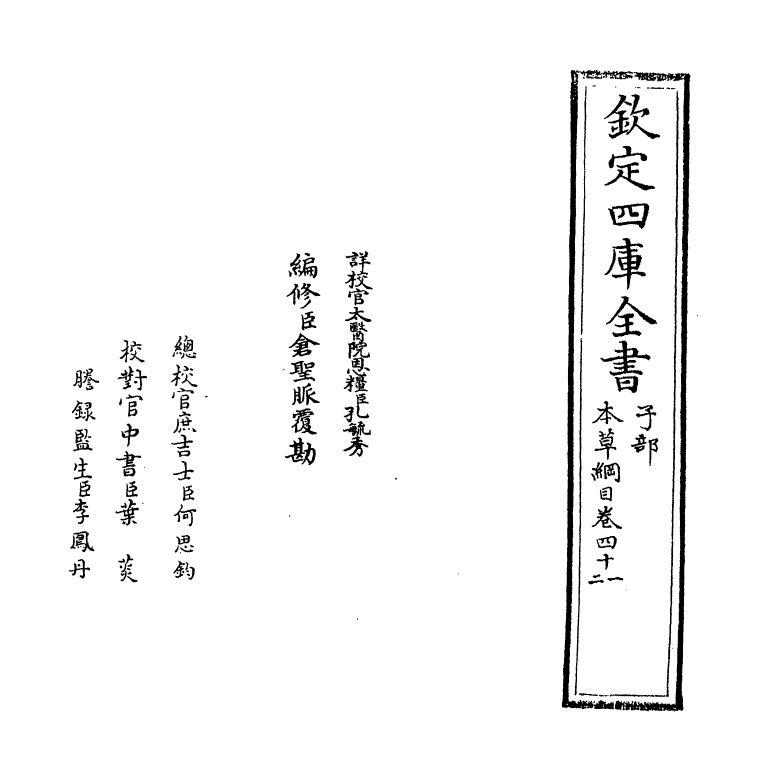 欽定四庫全書
子部
本草綱目卷四十一
二
詳校官太醫院恩糧臣孔毓秀
編修臣倉聖脈覆勘
總校官庶吉士臣何思鈞
校對官中書臣葉 菼
謄録監生臣李鳳丹